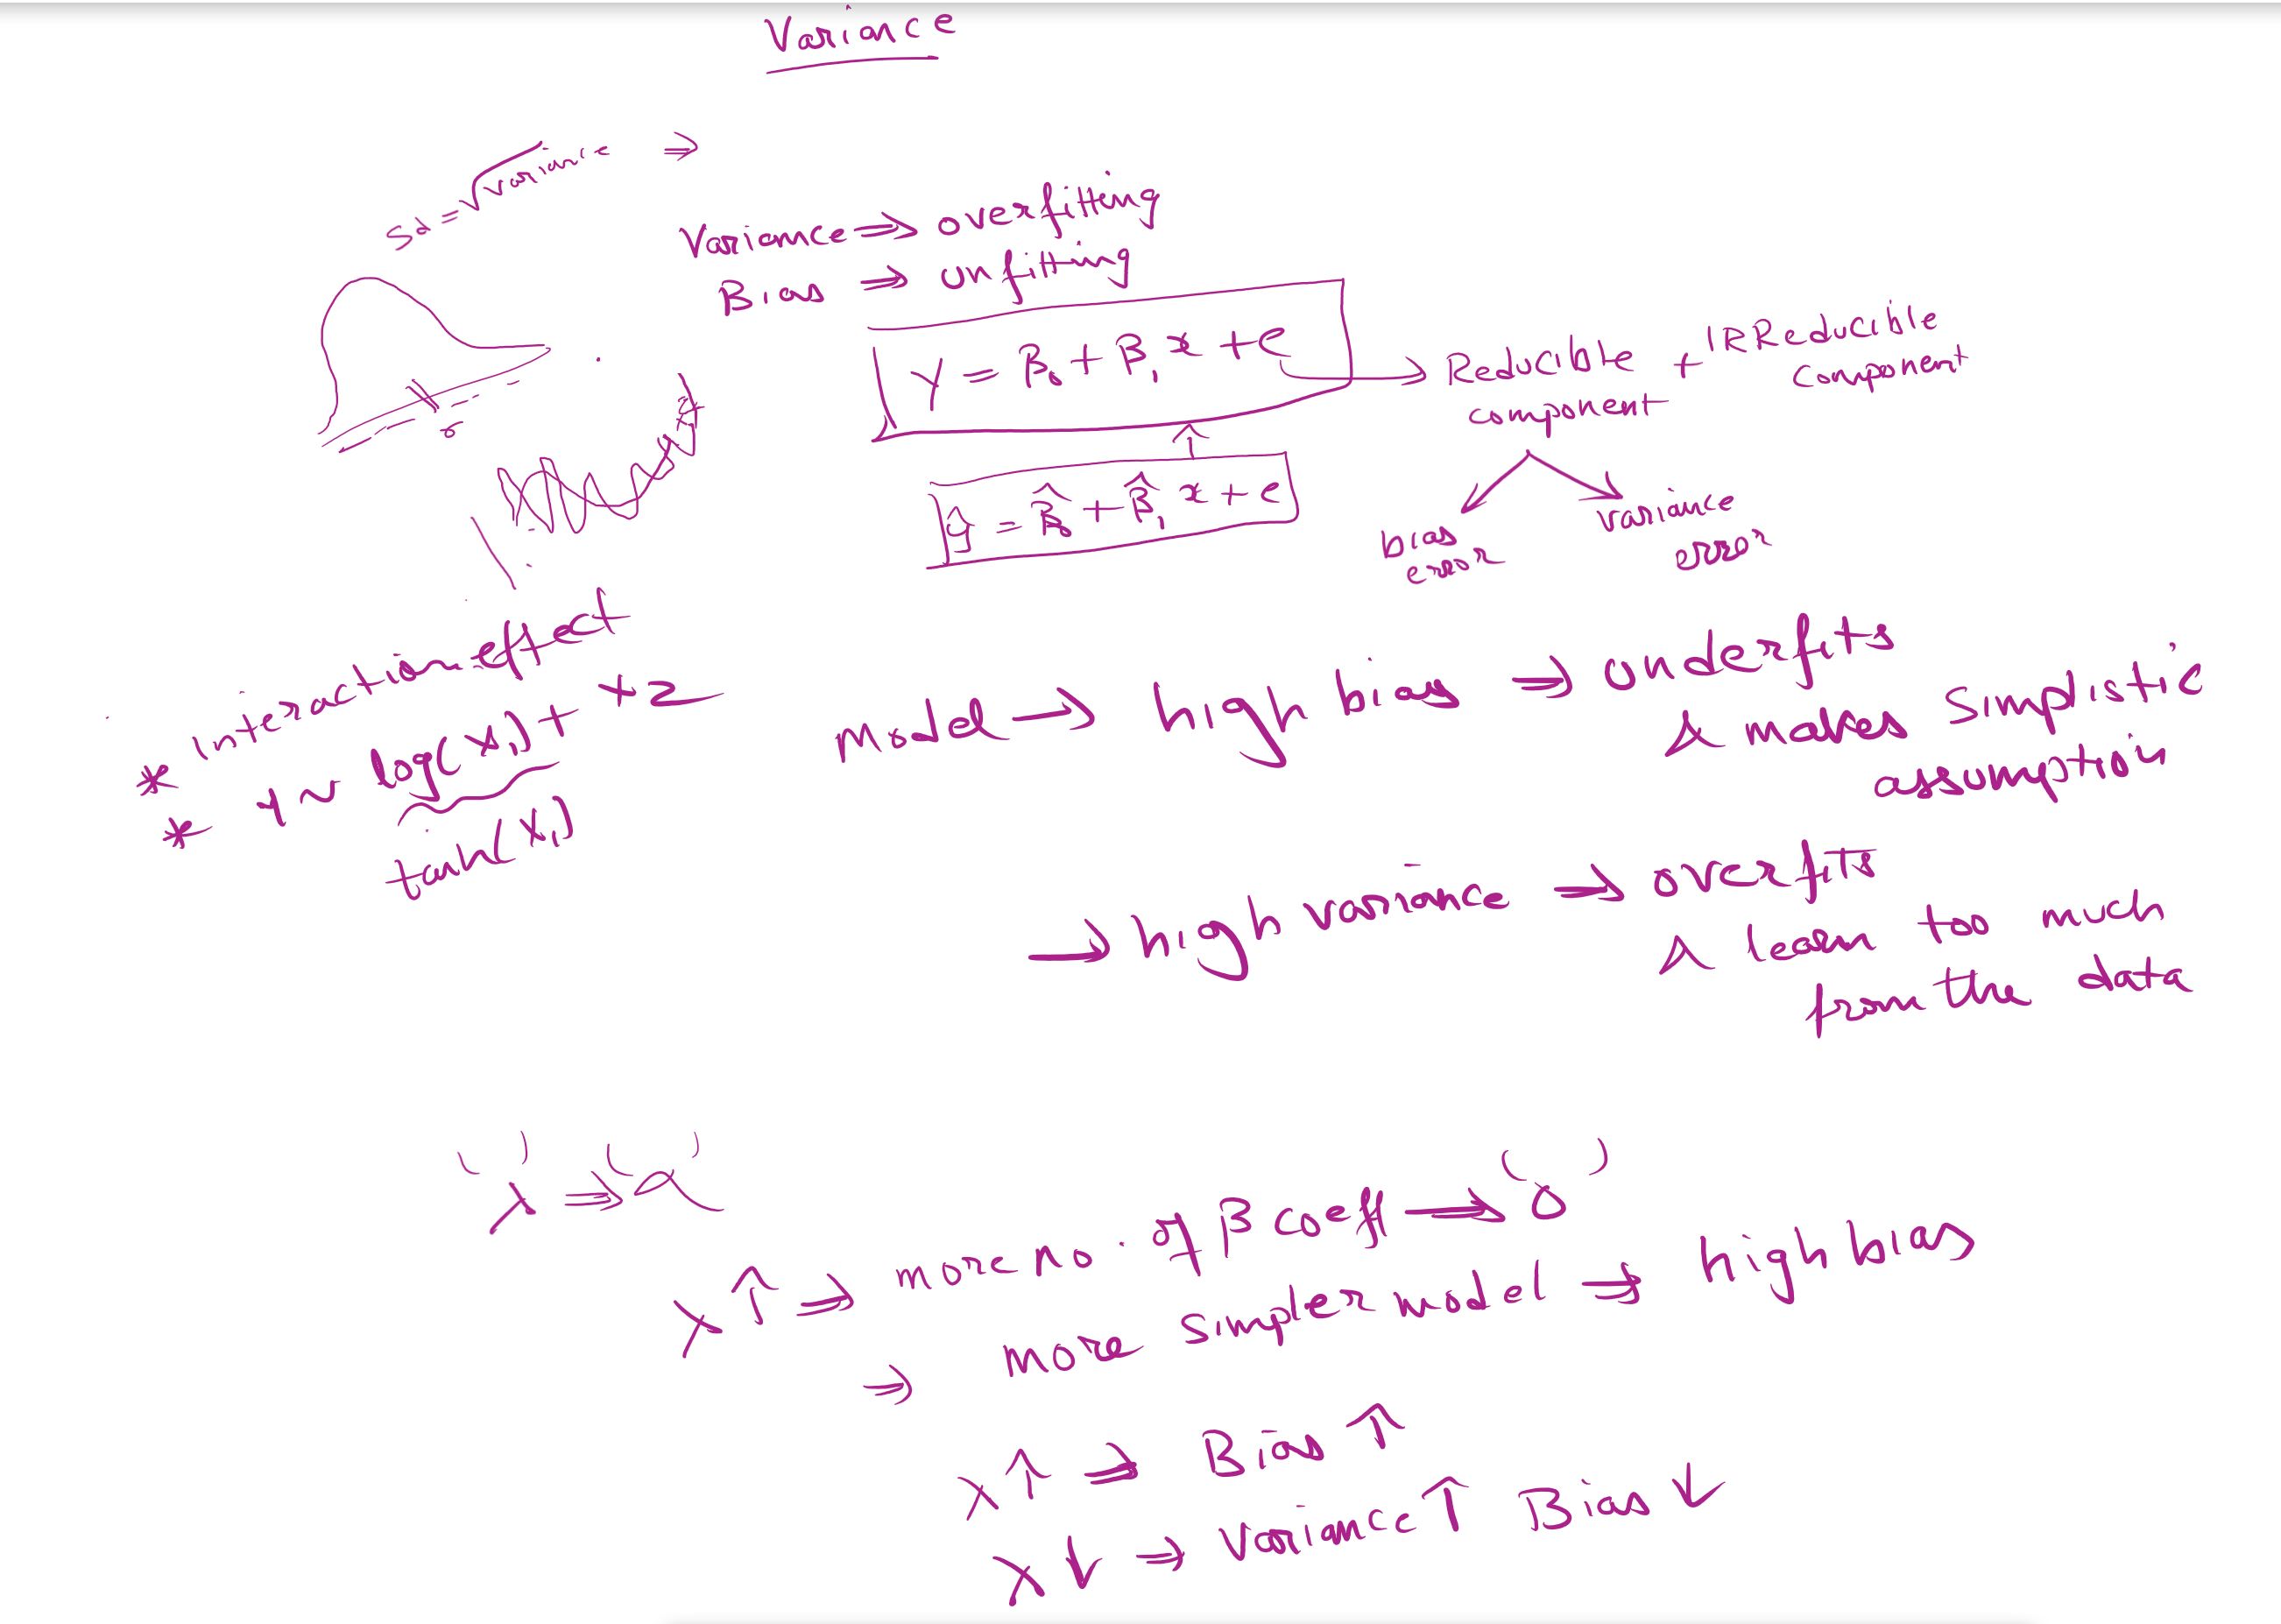 Variance
Sd = √variance ⇒
Variance ⇒ overfitting
Bias ⇒ unfitting
Y = β₀ + β₁x + e → Reducible component + IRReducible component
ŷ = β̂₀ + β̂₁x + e
bias error
variance error
* interaction effect
* Y ~ log(x₁) + x2
tanh(x₁)
Model → high bias ⇒ underfits
& makes simplistic
assumption
→ high variance ⇒ overfits
& learn too much
from the data
'λ' ⇒ 'α'
λ↑ ⇒ more no. of β coeff → '0'
⇒ more simpler model ⇒ high bias
λ↑ ⇒ Bias ↑
λ↓ ⇒ variance↑ Bias ↓